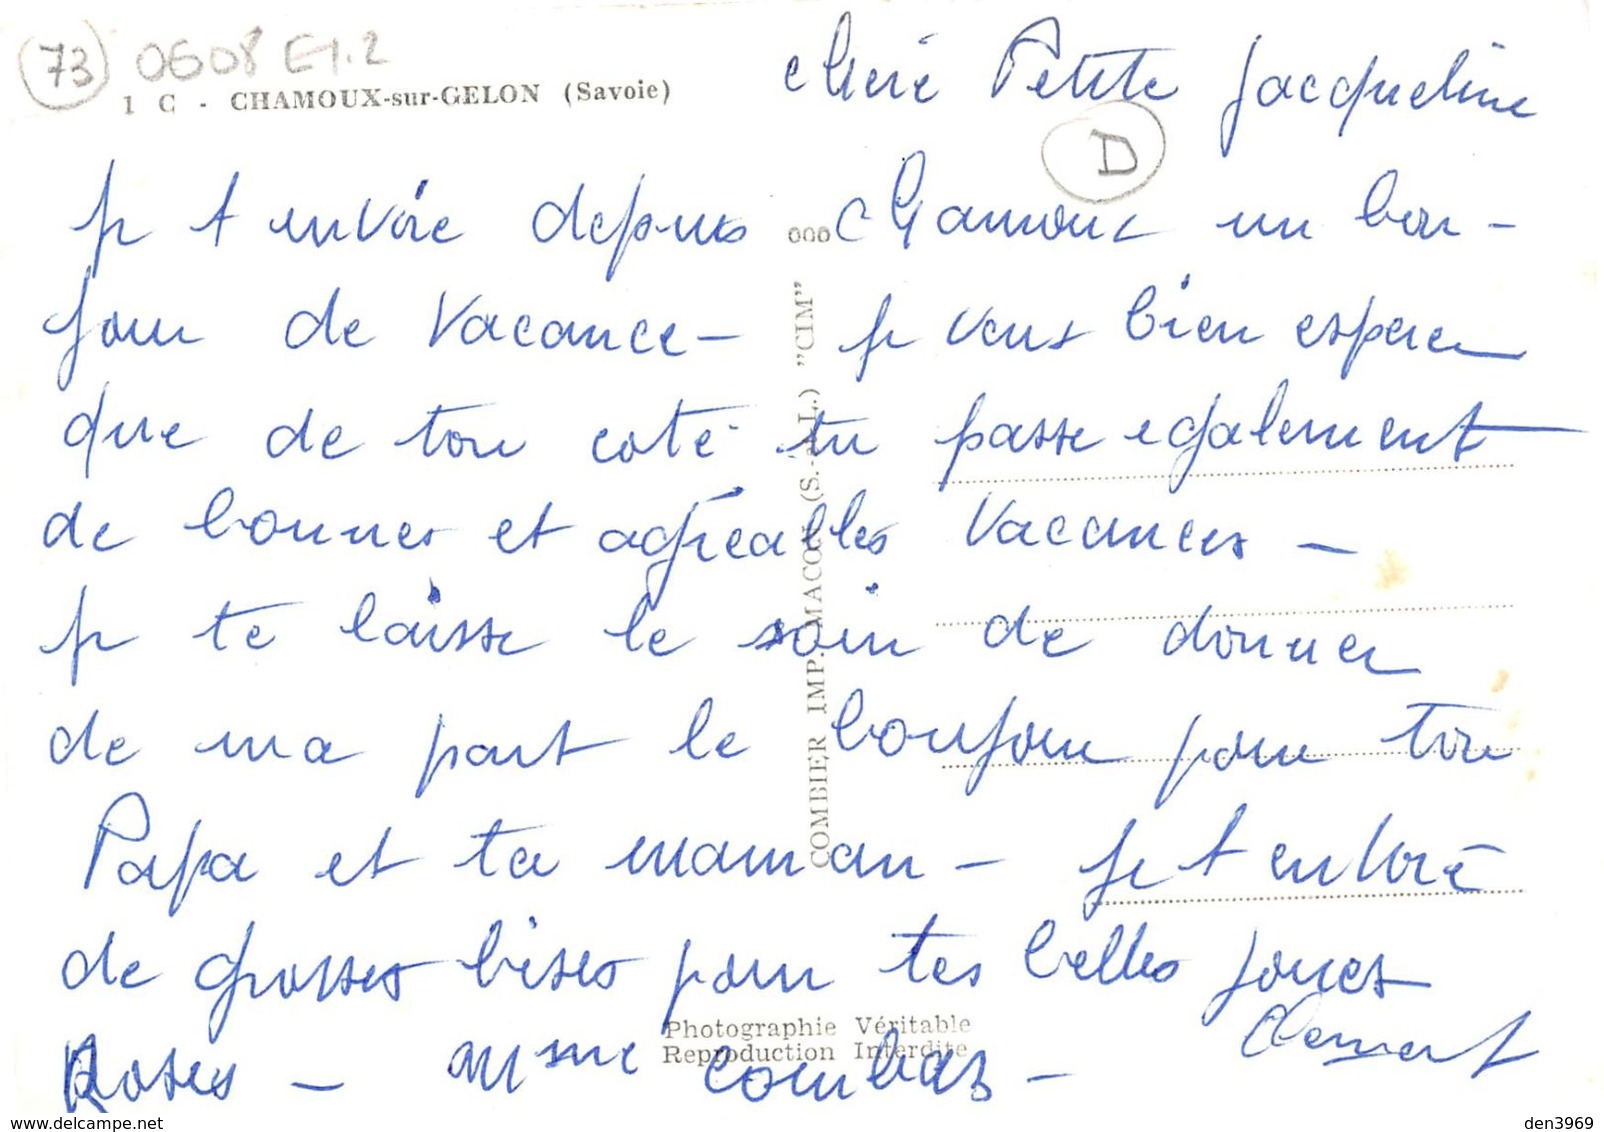 73 0608 E1.2
1 C - CHAMOUX-sur-GELON (Savoie)
chère Petite Jacqueline
D
je t envoie depuis Chamoux un bon-
000
jour de Vacance - je veux bien esperer
que de ton coté tu passe egalement
de bonnes et agréables Vacances -
je te laisse le soin de donner
de ma part le bonjour pour ton
Papa et ta maman - je t envoie
de grosses bises pour tes belles joues
Roses - Mme Combaz -
Clement
COMBIER IMP. MACON (S.-&-L.) "CIM"
Photographie Véritable
Reproduction Interdite
den3969